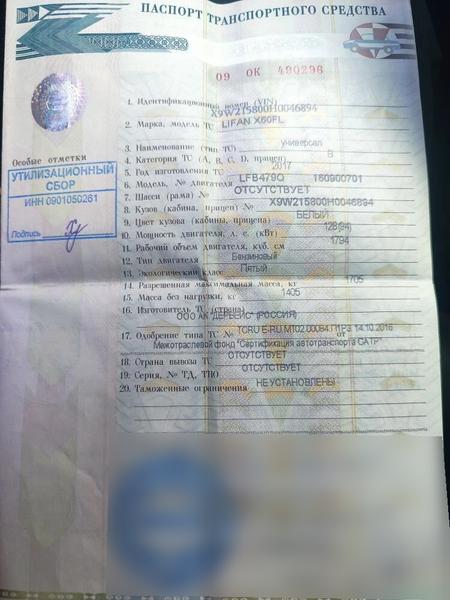 ПАСПОРТ ТРАНСПОРТНОГО СРЕДСТВА
09 ОК 490296
1. Идентификационный номер (VIN) X9W215800H0046894
2. Марка, модель ТС LIFAN X60FL
3. Наименование (тип ТС) универсал
4. Категория ТС (А, В, С, D, прицеп) B
5. Год изготовления ТС 2017
6. Модель, № двигателя LFB479Q 160900701
7. Шасси (рама) № ОТСУТСТВУЕТ
8. Кузов (кабина, прицеп) № X9W215800H0046894
9. Цвет кузова (кабины, прицепа) БЕЛЫЙ
10. Мощность двигателя, л. с. (кВт) 128(94)
11. Рабочий объем двигателя, куб. см 1794
12. Тип двигателя Бензиновый
13. Экологический класс Пятый
14. Разрешенная максимальная масса, кг 1705
15. Масса без нагрузки, кг 1405
16. Изготовитель ТС (страна)
ООО АК "ДЕРВЕЙС" (РОССИЯ)
17. Одобрение типа ТС № ТС RU E-RU.MT02.00084.П1Р3 14.10.2016
от
Межотраслевой фонд "Сертификация автотранспорта САТР"
18. Страна вывоза ТС ОТСУТСТВУЕТ
19. Серия, № ТД, ТПО ОТСУТСТВУЕТ
20. Таможенные ограничения НЕ УСТАНОВЛЕНЫ
Особые отметки
УТИЛИЗАЦИОННЫЙ
СБОР
ИНН 0901050261
Подпись